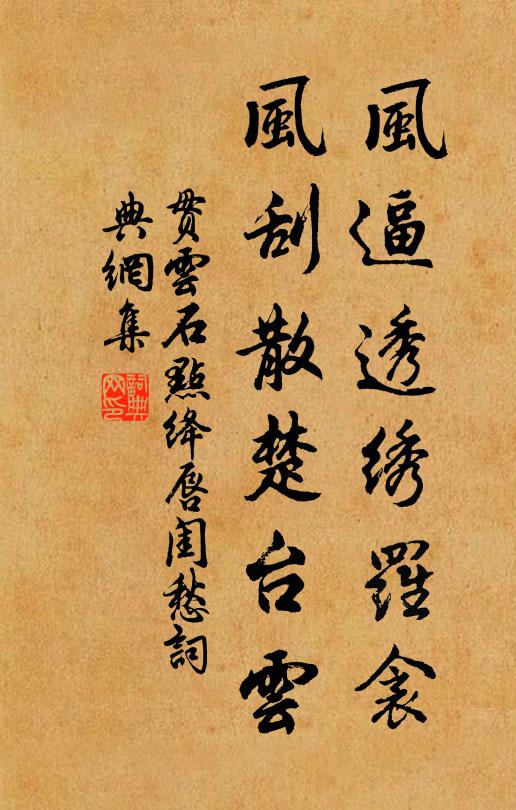 風逼透绣羅衾
風刮散楚台雲
贯雲石點绛唇闺愁詞
典網集
詞典网印